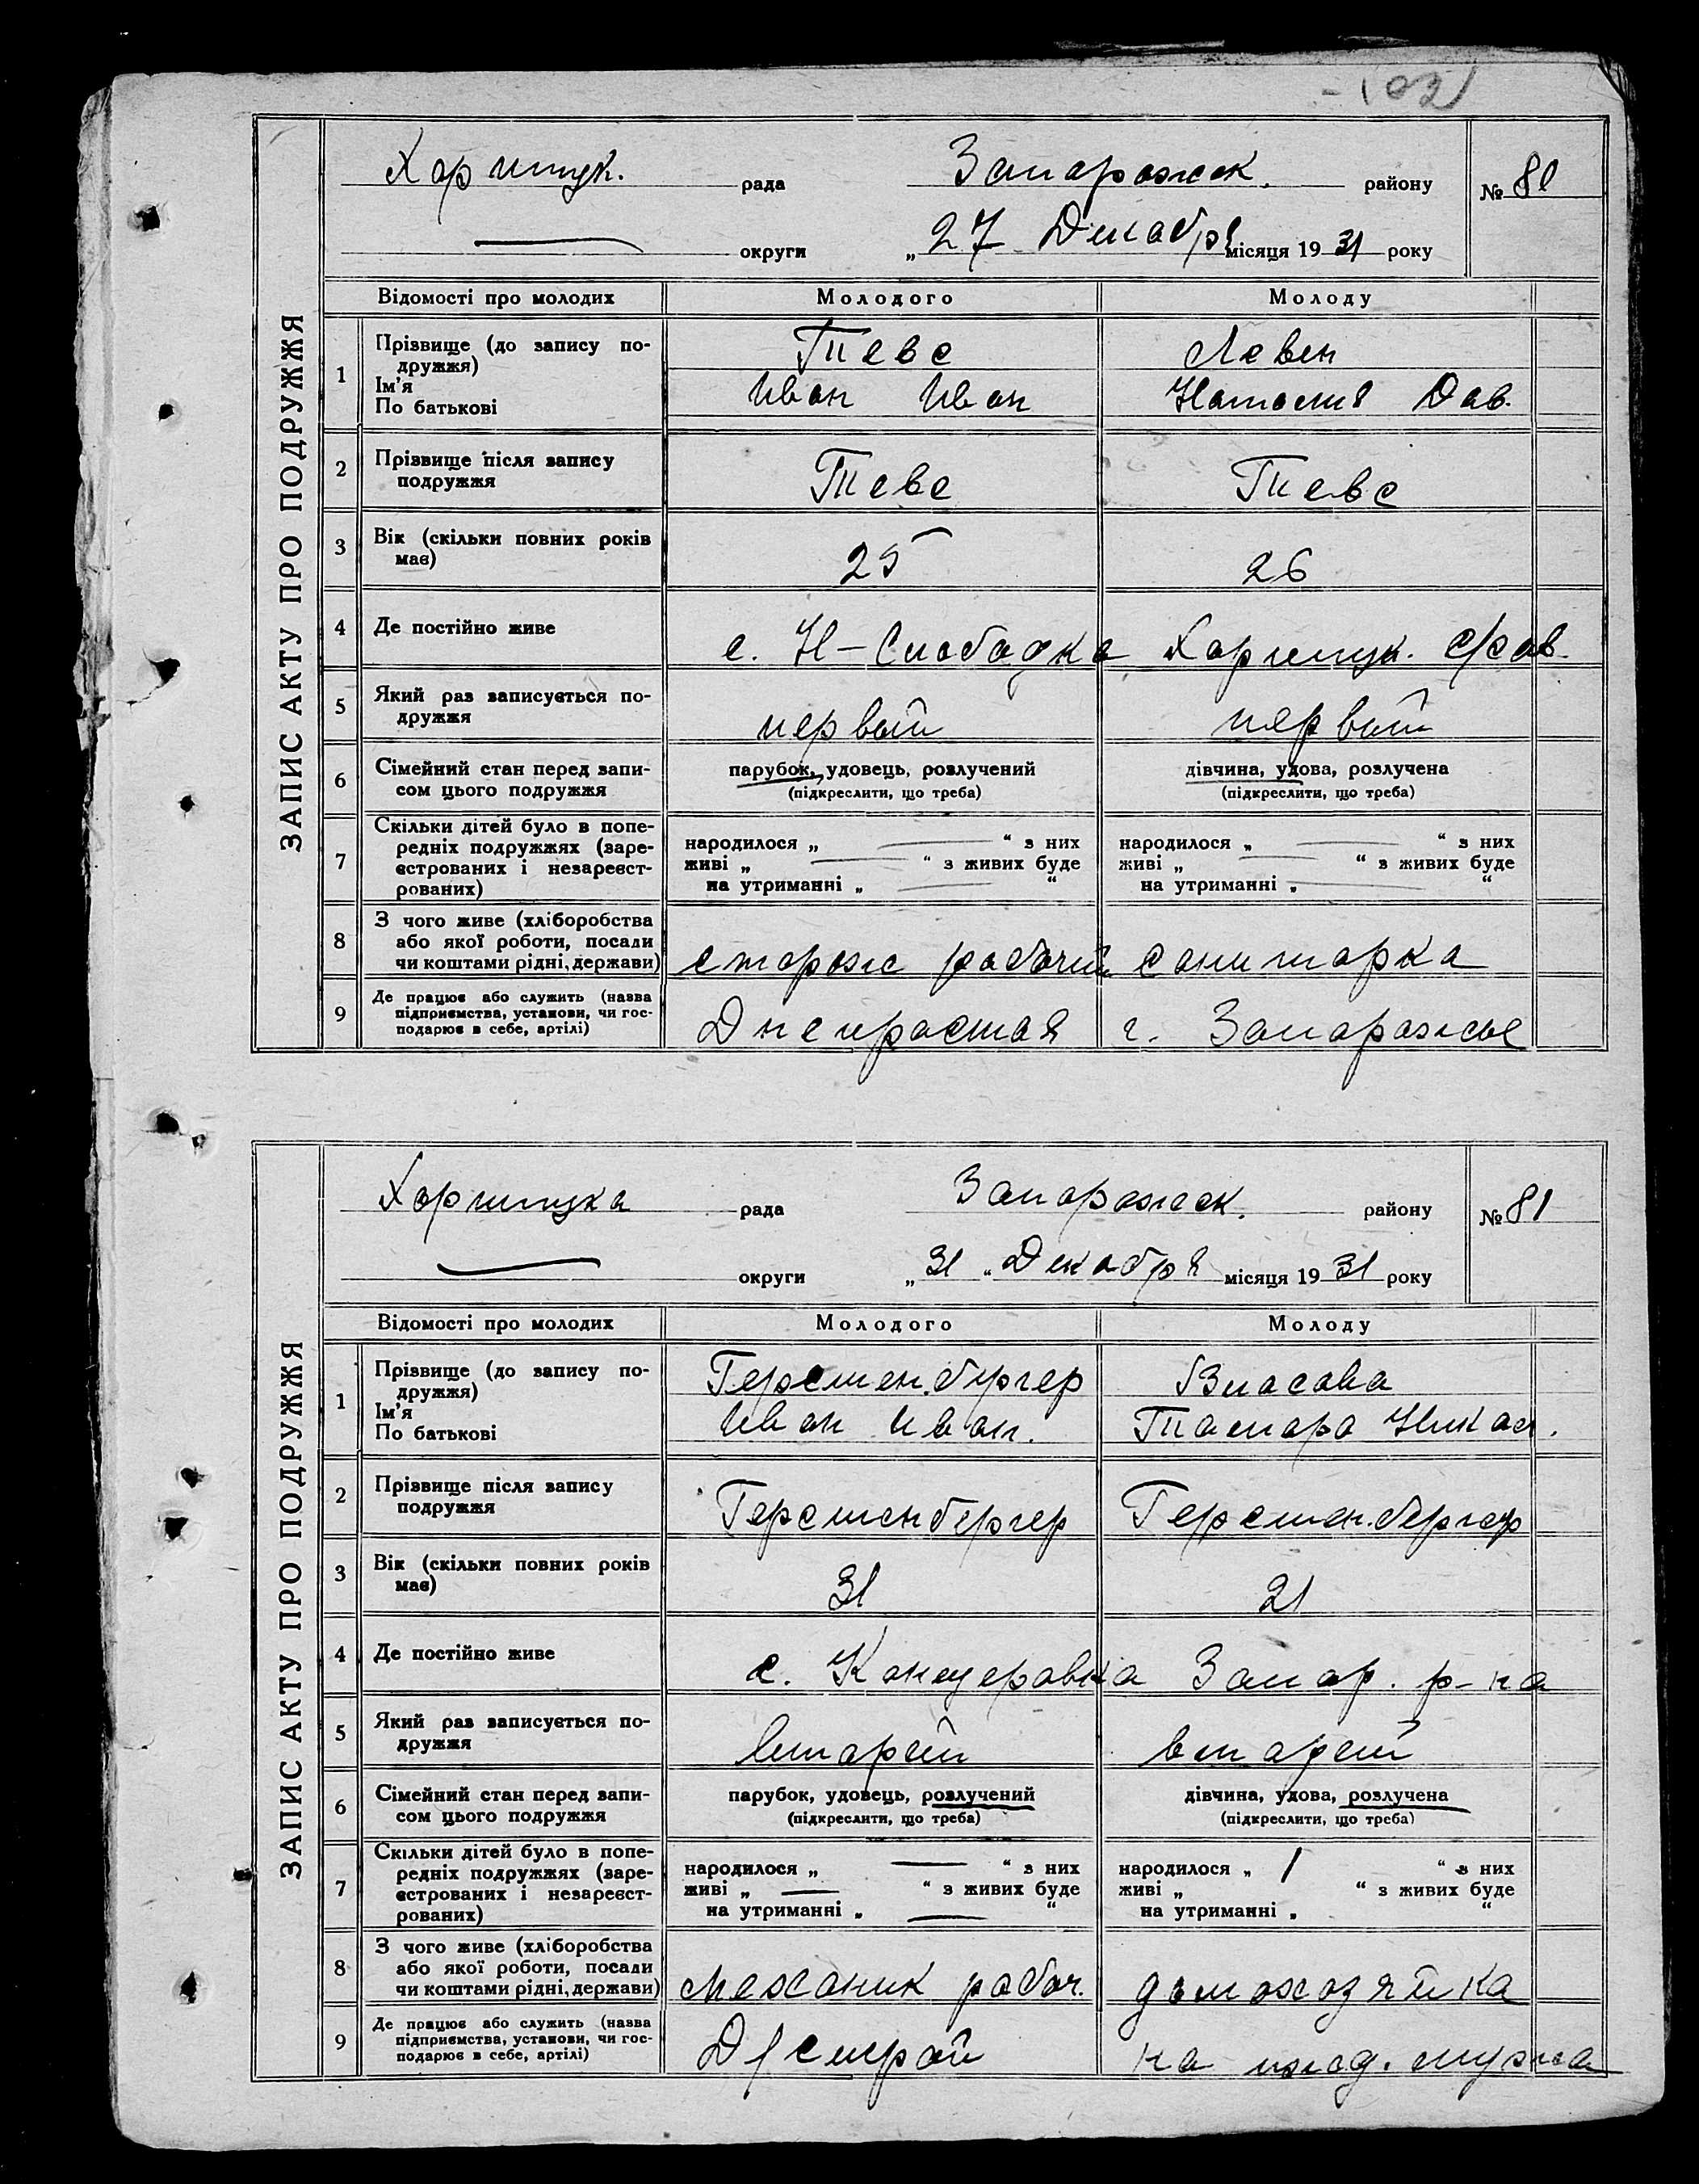 102
ЗАПИС АКТУ ПРО ПОДРУЖЖЯ
Хортицк. рада Запорожск. району № 80
округи „27 Декабря місяця 1931 року
Відомості про молодих Молодого Молоду
1 Прізвище (до запису по-
дружжя) Тевс Левен
Ім’я
По батькові Иван Иван Наталия Дав.
2 Прізвище після запису
подружжя Тевс Тевс
3 Вік (скільки повних років
має) 25 26
4 Де постійно живе с. Н-Слободка Хортицк. с/сов.
5 Який раз записується по-
дружжя первый первый
6 Сімейний стан перед запи-
сом цього подружжя парубок, удовець, розлучений дівчина, удова, розлучена
(підкреслити, що треба) (підкреслити, що треба)
7 Скільки дітей було в попе-
редніх подружжях (заре-
єстрованих і незареєст-
рованих) народилося „ — “ з них народилося „ — “ з них
живі „ — “ з живих буде живі „ — “ з живих буде
на утриманні „ — “ на утриманні „ — “
8 З чого живе (хліборобства
або якої роботи, посади
чи коштами рідні, держави) сторож рабочий санитарка
9 Де працює або служить (назва
підприємства, установи, чи гос-
подарює в себе, артілі) г. Запорожье
ЗАПИС АКТУ ПРО ПОДРУЖЖЯ
Хортицка рада Запорожск. району № 81
округи „31„ Декабря місяця 1931 року
Відомості про молодих Молодого Молоду
1 Прізвище (до запису по-
дружжя) Герстенбергер Власова
Ім’я
По батькові Иван Иван. Тамара Никол.
2 Прізвище після запису
подружжя Герстенбергер Герстенбергер
3 Вік (скільки повних років
має) 31 21
4 Де постійно живе с. Канцеровка Запор. р-на
5 Який раз записується по-
дружжя вторый вторый
6 Сімейний стан перед запи-
сом цього подружжя парубок, удовець, розлучений дівчина, удова, розлучена
(підкреслити, що треба) (підкреслити, що треба)
7 Скільки дітей було в попе-
редніх подружжях (заре-
єстрованих і незареєст-
рованих) народилося „ — “ з них народилося „ 1 “ з них
живі „ — “ з живих буде живі „ “ з живих буде
на утриманні „ — “ на утриманні „ “
8 З чого живе (хліборобства
або якої роботи, посади
чи коштами рідні, держави) механик рабоч. домохозяйка
9 Де працює або служить (назва
підприємства, установи, чи гос-
подарює в себе, артілі) Д/строй на ижд. мужа